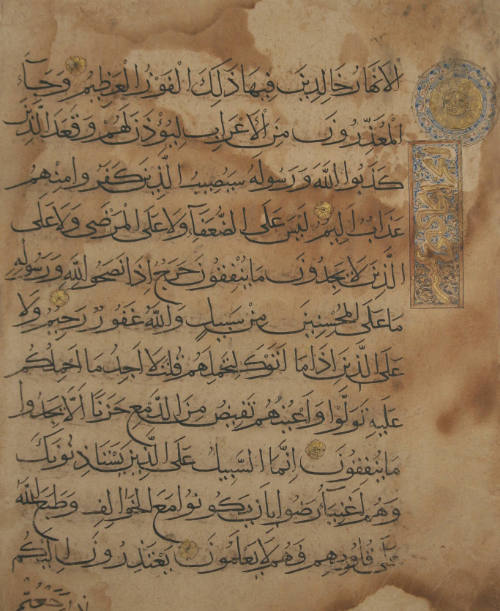 الأَنْهَارُ خَالِدِينَ فِيهَا ذَلِكَ الْفَوْزُ الْعَظِيمُ وَجَاءَ
الْمُعَذِّرُونَ مِنَ الأَعْرَابِ لِيُؤْذَنَ لَهُمْ وَقَعَدَ الَّذِينَ
كَذَبُوا اللَّهَ وَرَسُولَهُ سَيُصِيبُ الَّذِينَ كَفَرُوا مِنْهُمْ
عَذَابٌ أَلِيمٌ لَيْسَ عَلَى الضُّعَفَاءِ وَلَا عَلَى الْمَرْضَى وَلَا عَلَى
الَّذِينَ لَا يَجِدُونَ مَا يُنْفِقُونَ حَرَجٌ إِذَا نَصَحُوا لِلَّهِ وَرَسُولِهِ
مَا عَلَى الْمُحْسِنِينَ مِنْ سَبِيلٍ وَاللَّهُ غَفُورٌ رَحِيمٌ وَلَا
عَلَى الَّذِينَ إِذَا مَا أَتَوْكَ لِتَحْمِلَهُمْ قُلْتَ لَا أَجِدُ مَا أَحْمِلُكُمْ
عَلَيْهِ تَوَلَّوْا وَأَعْيُنُهُمْ تَفِيضُ مِنَ الدَّمْعِ حَزَنًا أَلَّا يَجِدُوا
مَا يُنْفِقُونَ إِنَّمَا السَّبِيلُ عَلَى الَّذِينَ يَسْتَأْذِنُونَكَ
وَهُمْ أَغْنِيَاءُ رَضُوا بِأَنْ يَكُونُوا مَعَ الْخَوَالِفِ وَطَبَعَ اللَّهُ
عَلَى قُلُوبِهِمْ فَهُمْ لَا يَعْلَمُونَ يَعْتَذِرُونَ إِلَيْكُمْ
إِذَا رَجَعْتُمْ